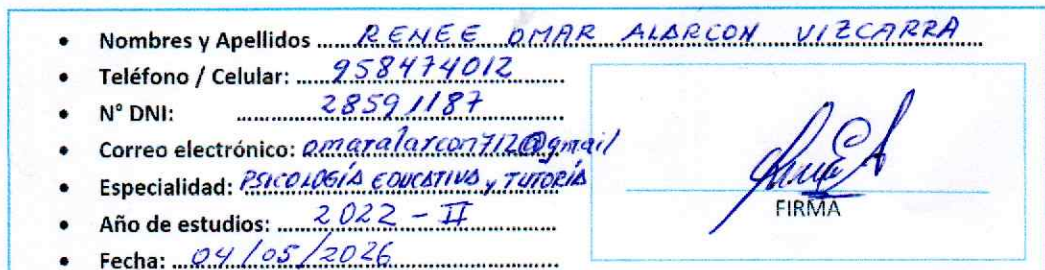 • Nombres y Apellidos ........ RENEE OMAR ALARCON VIZCARRA
• Teléfono / Celular: ..... 958474012
• N° DNI: ........ 28591187
• Correo electrónico: omaralarcon712@gmail
• Especialidad: PSICOLOGÍA EDUCATIVA y TUTORÍA
• Año de estudios: ..... 2022 - II
• Fecha: ... 04/05/2026
FIRMA